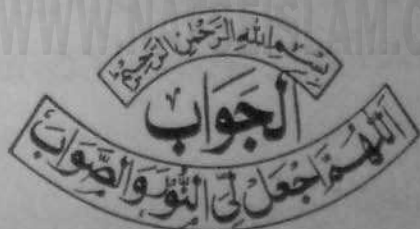 WWW.N
ISLAM.C
بِسْمِ اللهِ الرَّحْمٰنِ الرَّحِيْمِ
اَلْجَوَابْ
اَللّٰهُمَّ اجْعَلْ لِيَ النُّوْرَ وَالصَّوَابَ